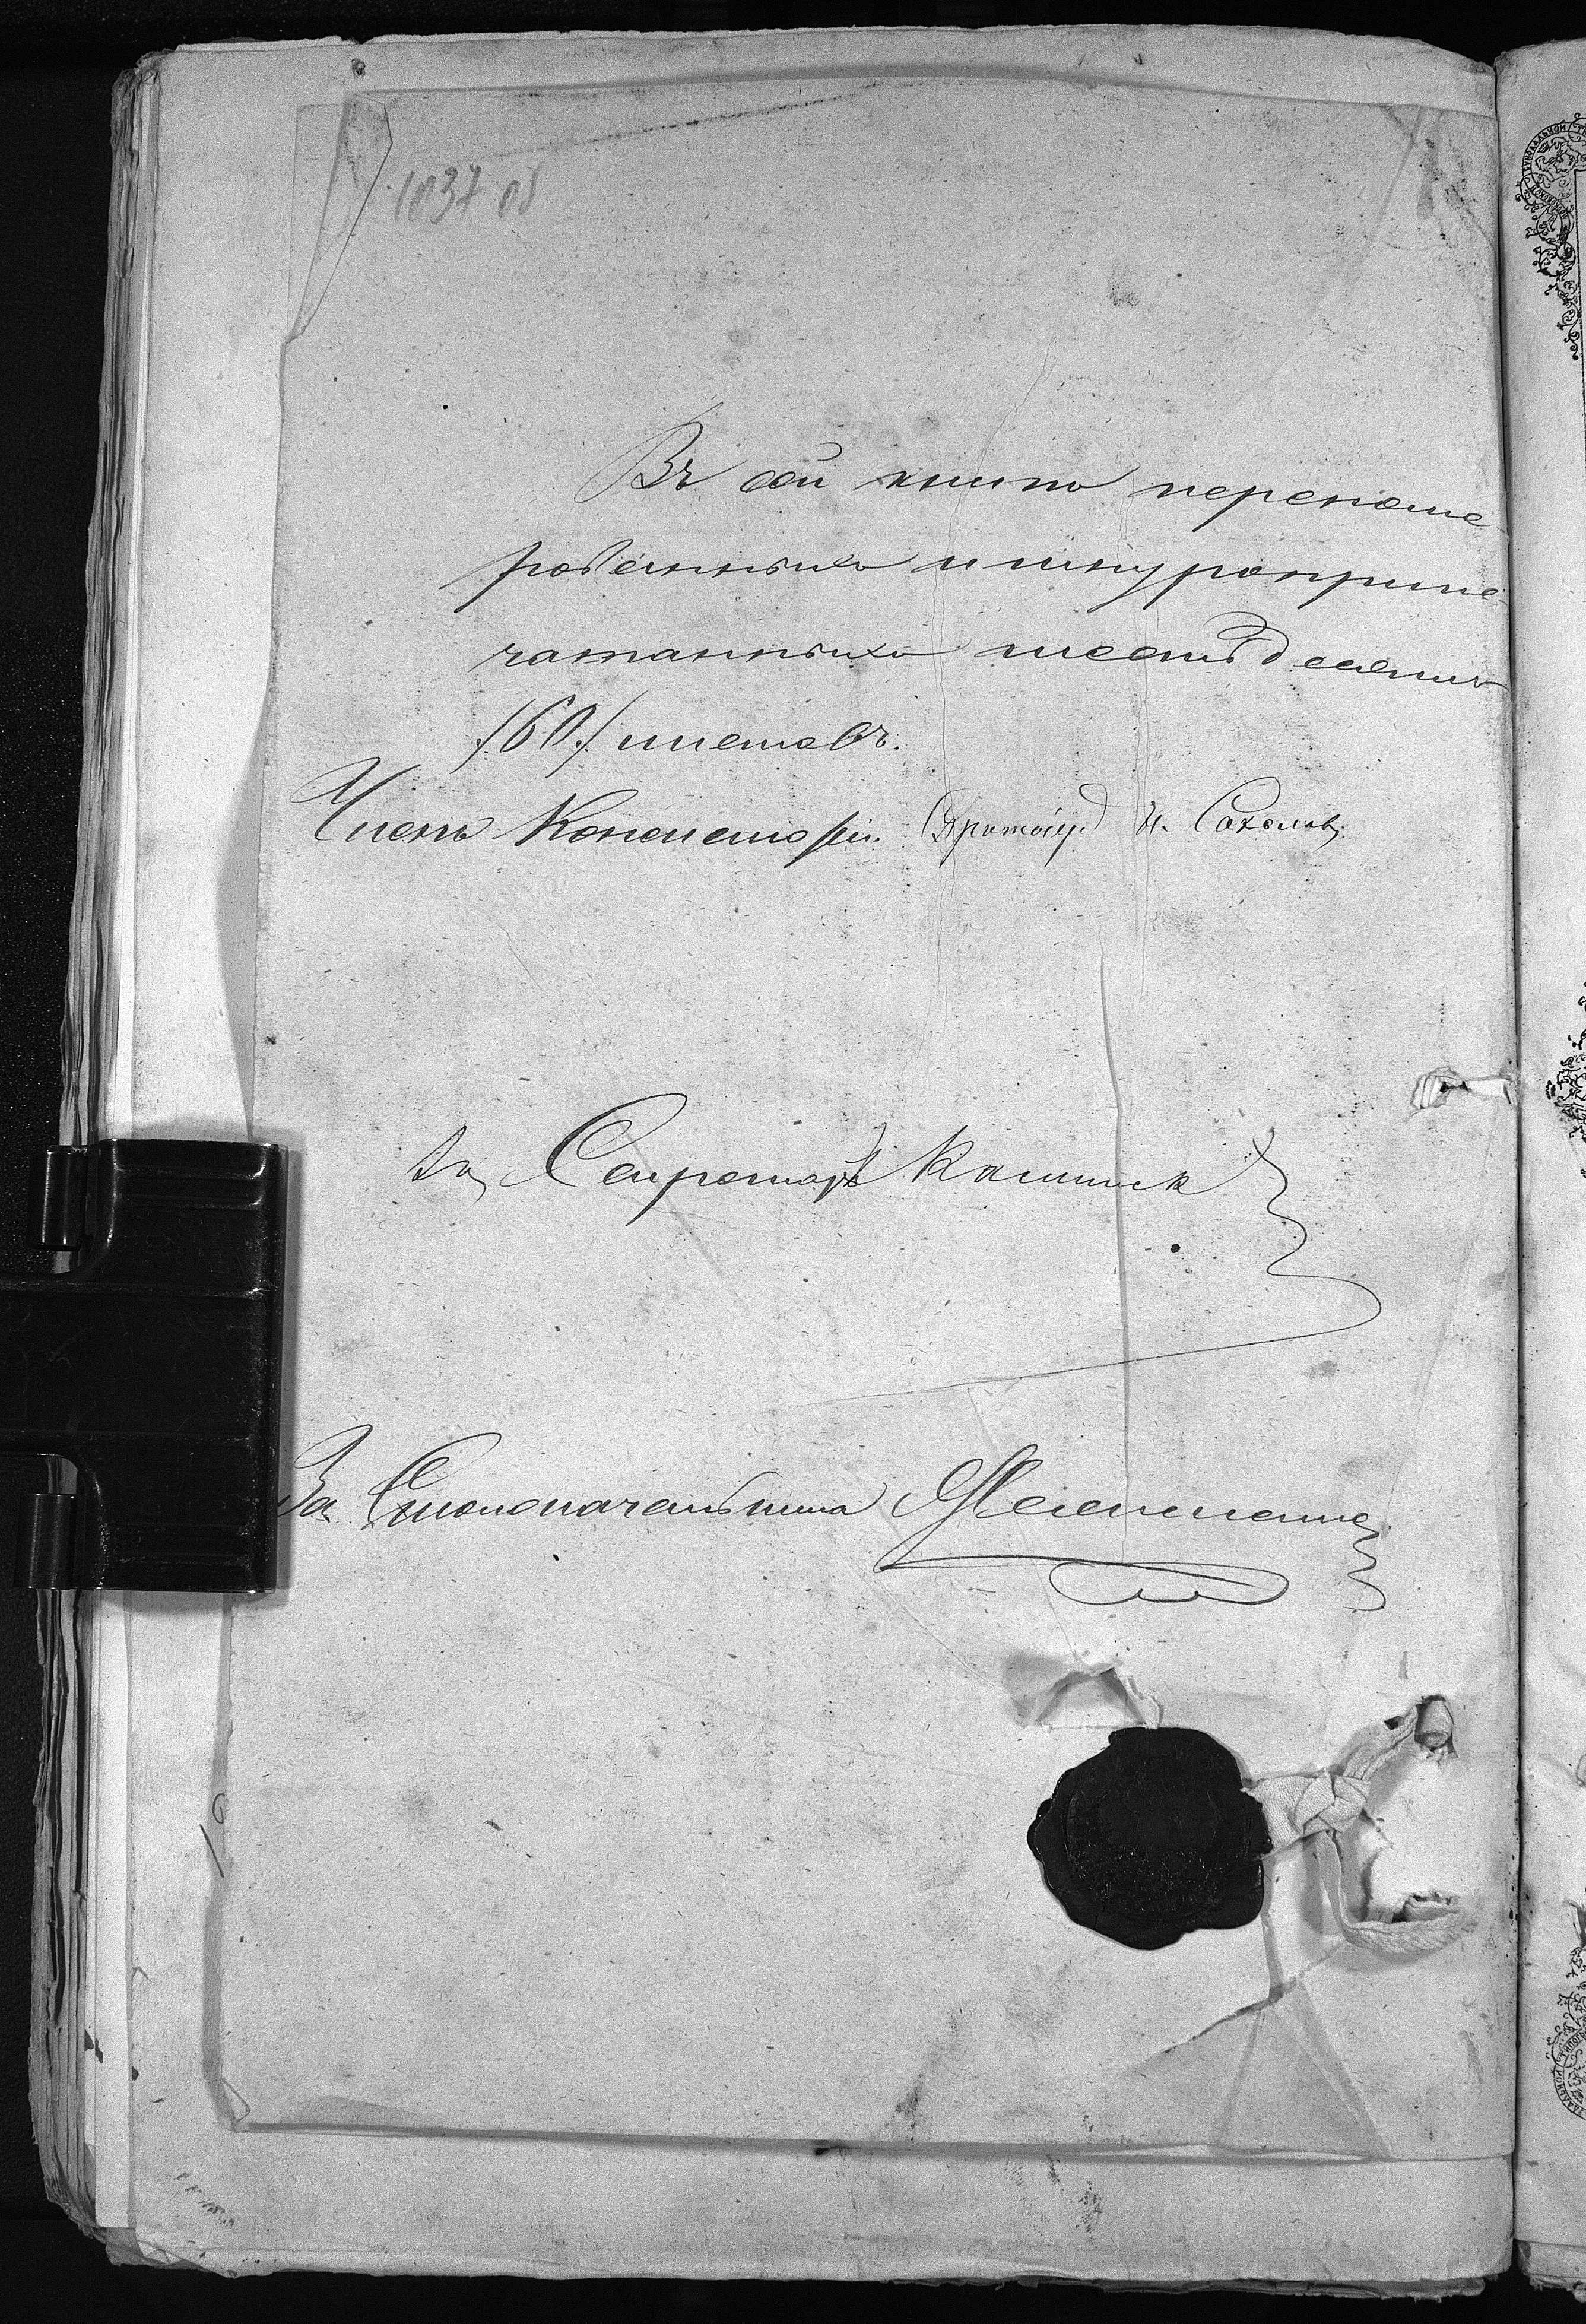 1037 об
Въ сей книгѣ перенуме-
рованныхъ и шнуроприпе-
чатанныхъ шестьдесятъ
/60/ листовъ.
Членъ Консисторіи Протоіер. Н. Соколовъ
За Секретаря
За Столоначальника